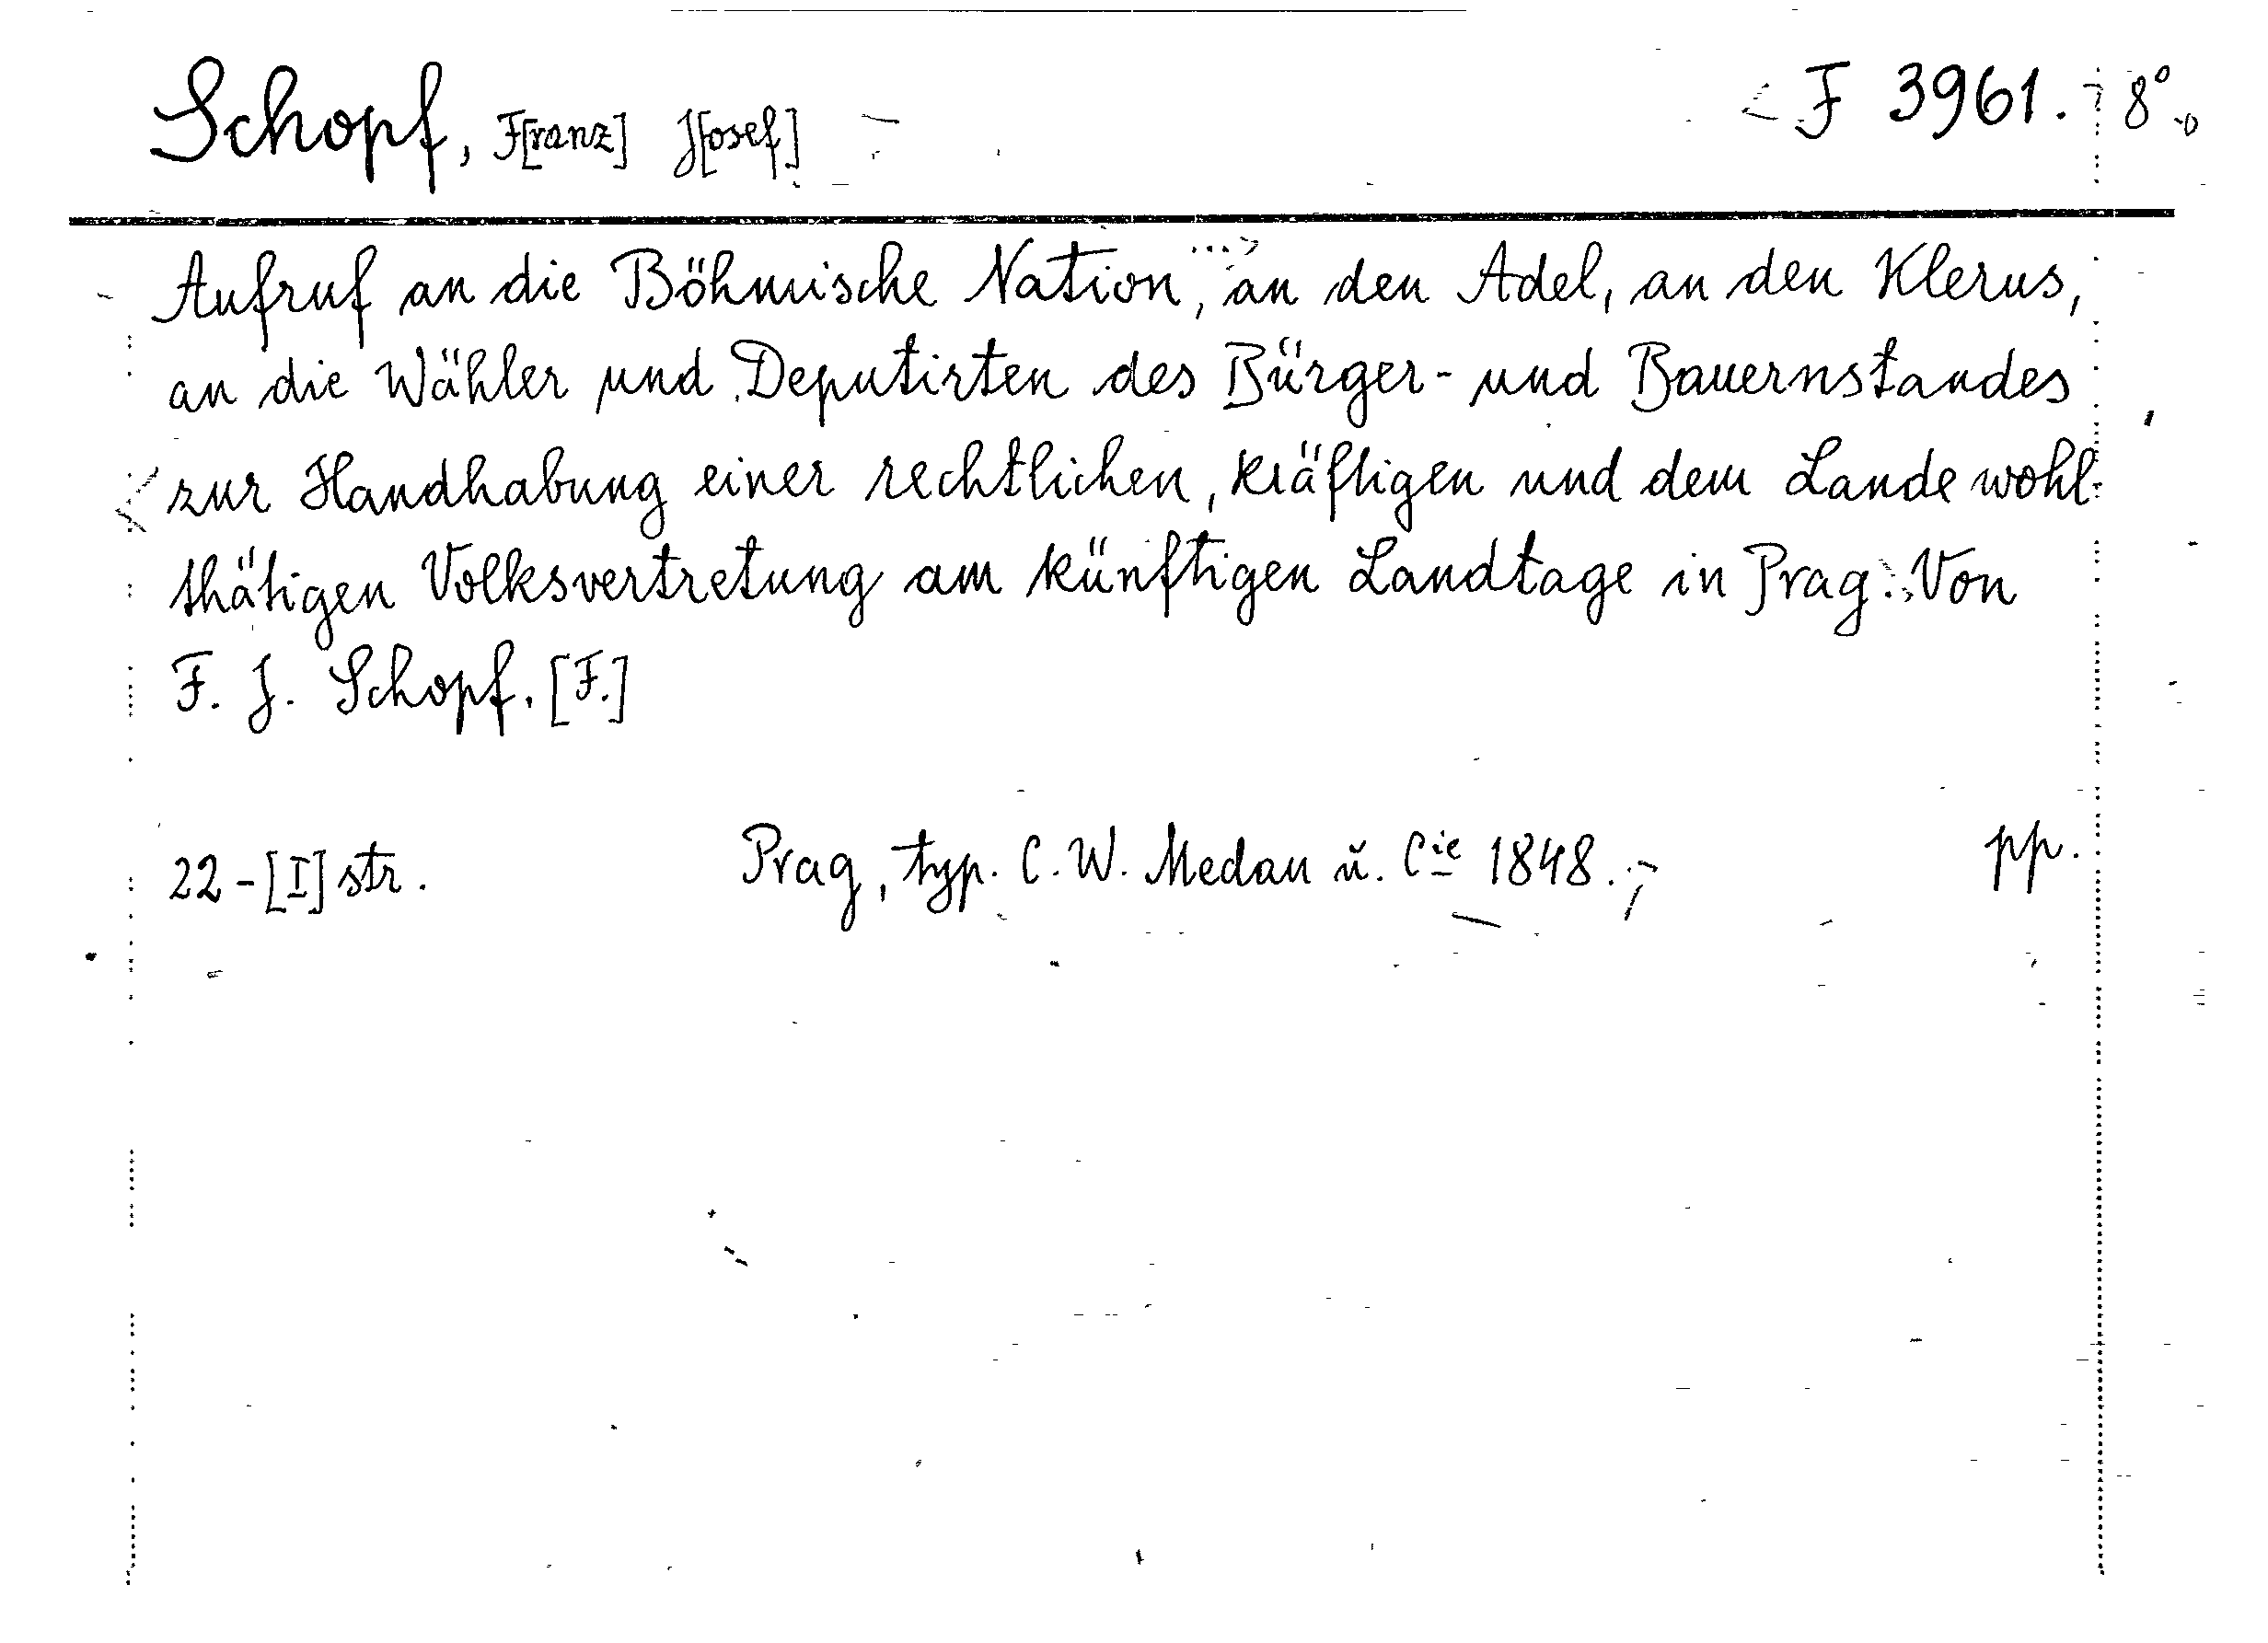 Schopf, F[ranz] J[osef] F 3961. 8°
Aufruf an die Böhmische Nation, an den Adel, an den Klerus,
an die Wähler und Deputirten des Bürger- und Bauernstandes
zur Handhabung einer rechtlichen, kräftigen und dem Lande wohl-
thätigen Volksvertretung am künftigen Landtage in Prag. Von
F. J. Schopf. [F.]
22-[I] str. Prag, typ. C. W. Medau ŭ. Cie 1848. pp.